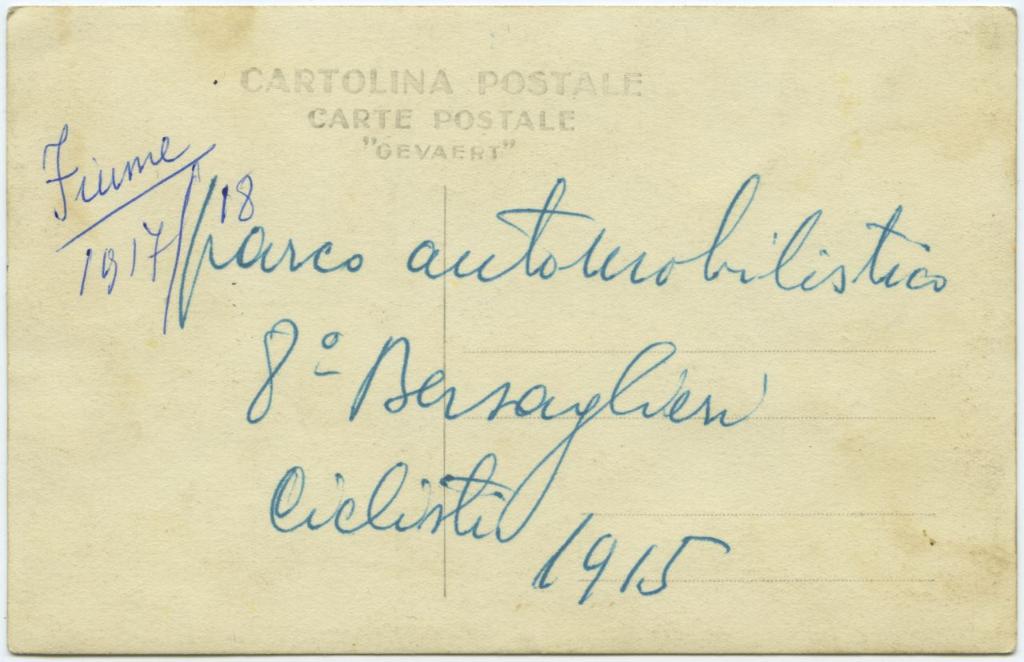 CARTOLINA POSTALE
CARTE POSTALE
"GEVAERT"
Fiume
1917/18
parco automobilistico
8º Bersaglieri
Ciclisti
1915